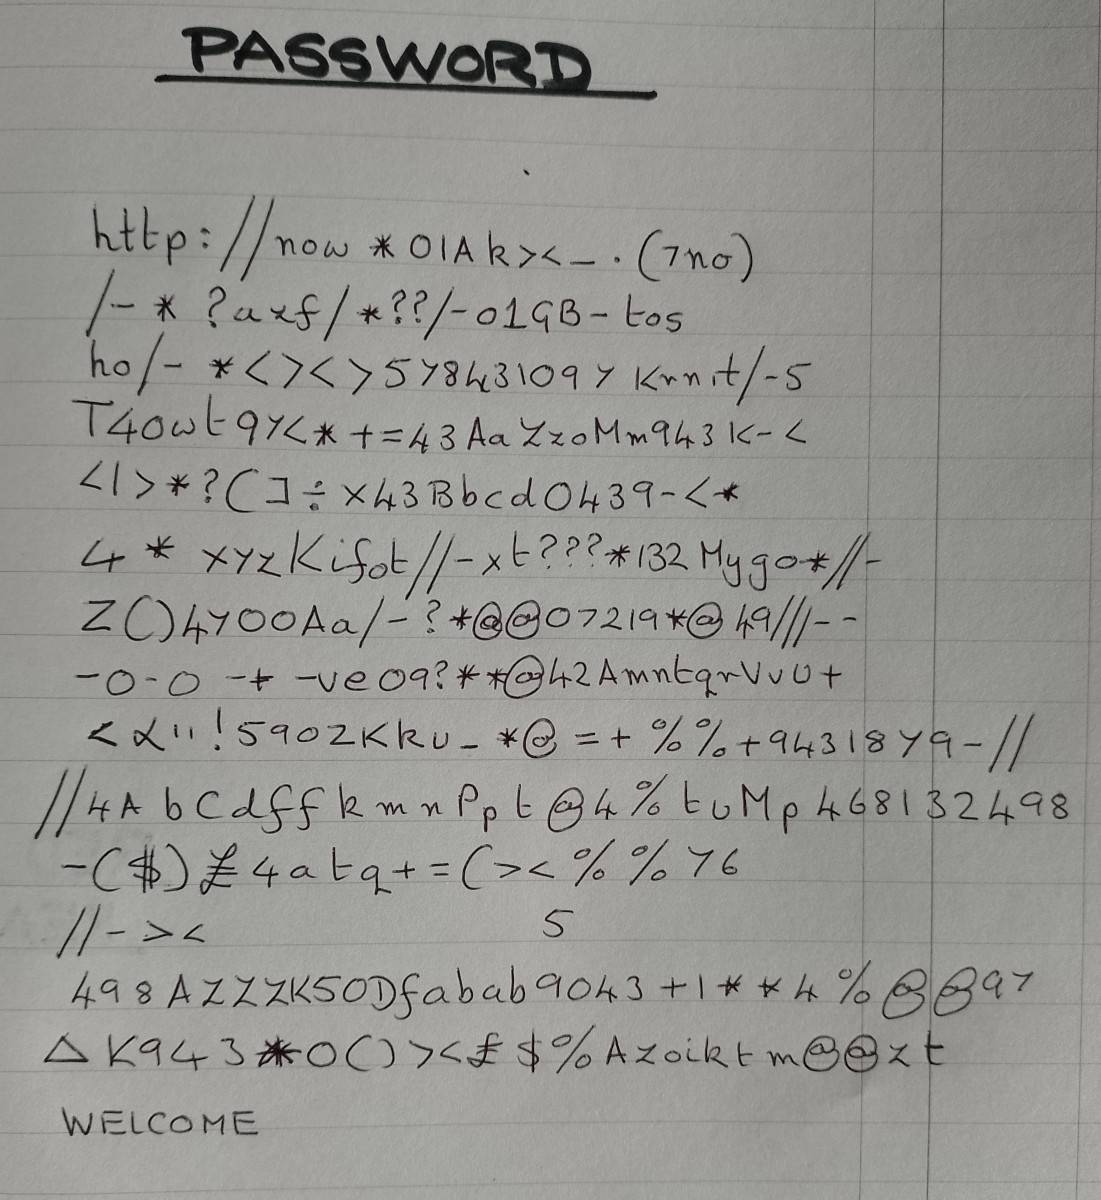 PASSWORD
http://now *01Ak><_.(7no)
/-* ?axf/*??/-01GB-tos
ho/- *<><>57843109y Krnit/-5
T40wt9Y<*+=43AaZzoMm943K-<
<1>*?(]÷x43Bbcd0439-<*
4* xyzKifot//-xt???*132Mygo*//-
Z()4Y00Aa/-?*@@07219*@49///--
-0-0 -+ -ve09?**@42AmntqrVvU+
<α"!590ZKku_*@=+%%+9431879-//
//4AbCdffkmnPpt@4%tuMp468132498
-($)£4atq+=(><%%76
//-><    5
498AZZZK50Dfabab9043+1**4%@@97
ΔK943*0()><£$%Azoiktm@@zt
WELCOME